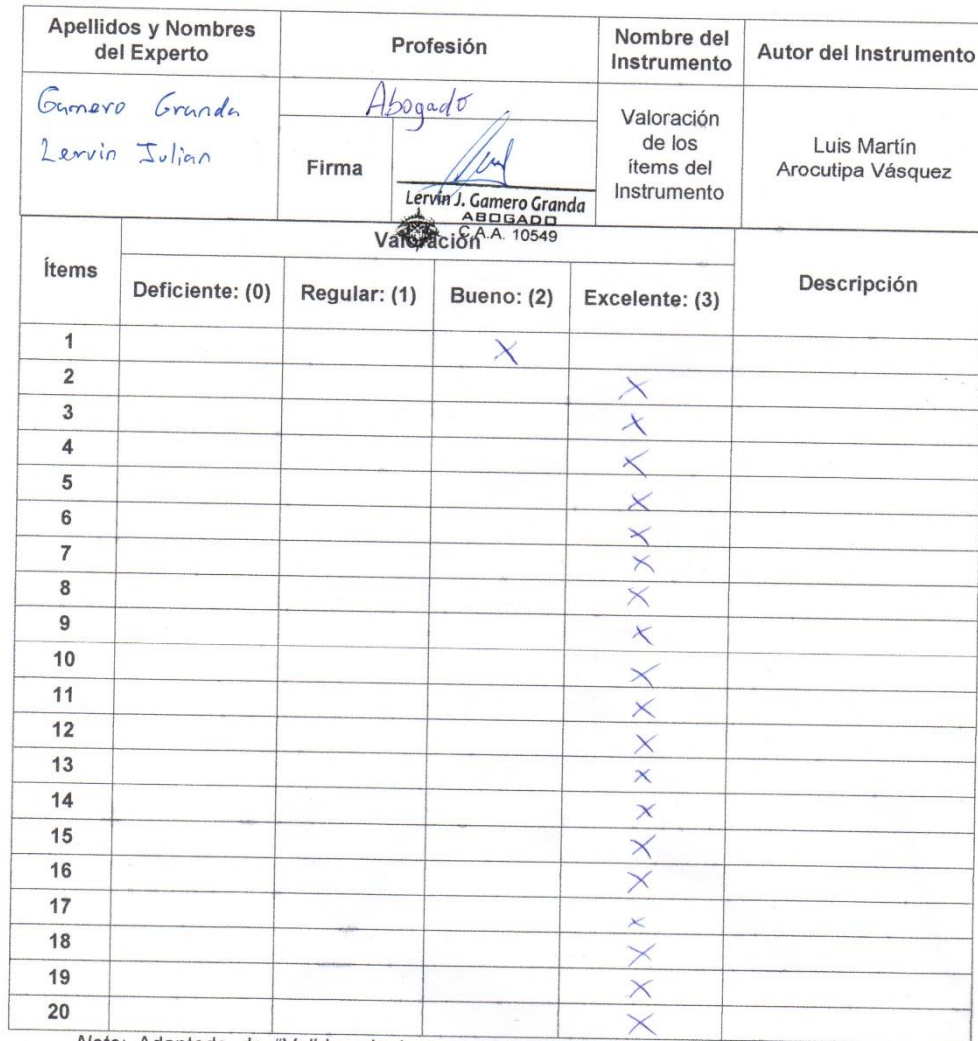 Apellidos y Nombres
del Experto
Profesión
Nombre del
Instrumento
Autor del Instrumento
Gamero Granda
Lervin Julian
Abogado
Firma
Lervin J. Gamero Granda
ABOGADO
C.A.A. 10549
Valoración
de los
ítems del
Instrumento
Luis Martín
Arocutipa Vásquez
Ítems
Valoración
Descripción
Deficiente: (0) Regular: (1) Bueno: (2) Excelente: (3)
1 X
2 X
3 X
4 X
5 X
6 X
7 X
8 X
9 X
10 X
11 X
12 X
13 X
14 X
15 X
16 X
17 X
18 X
19 X
20 X